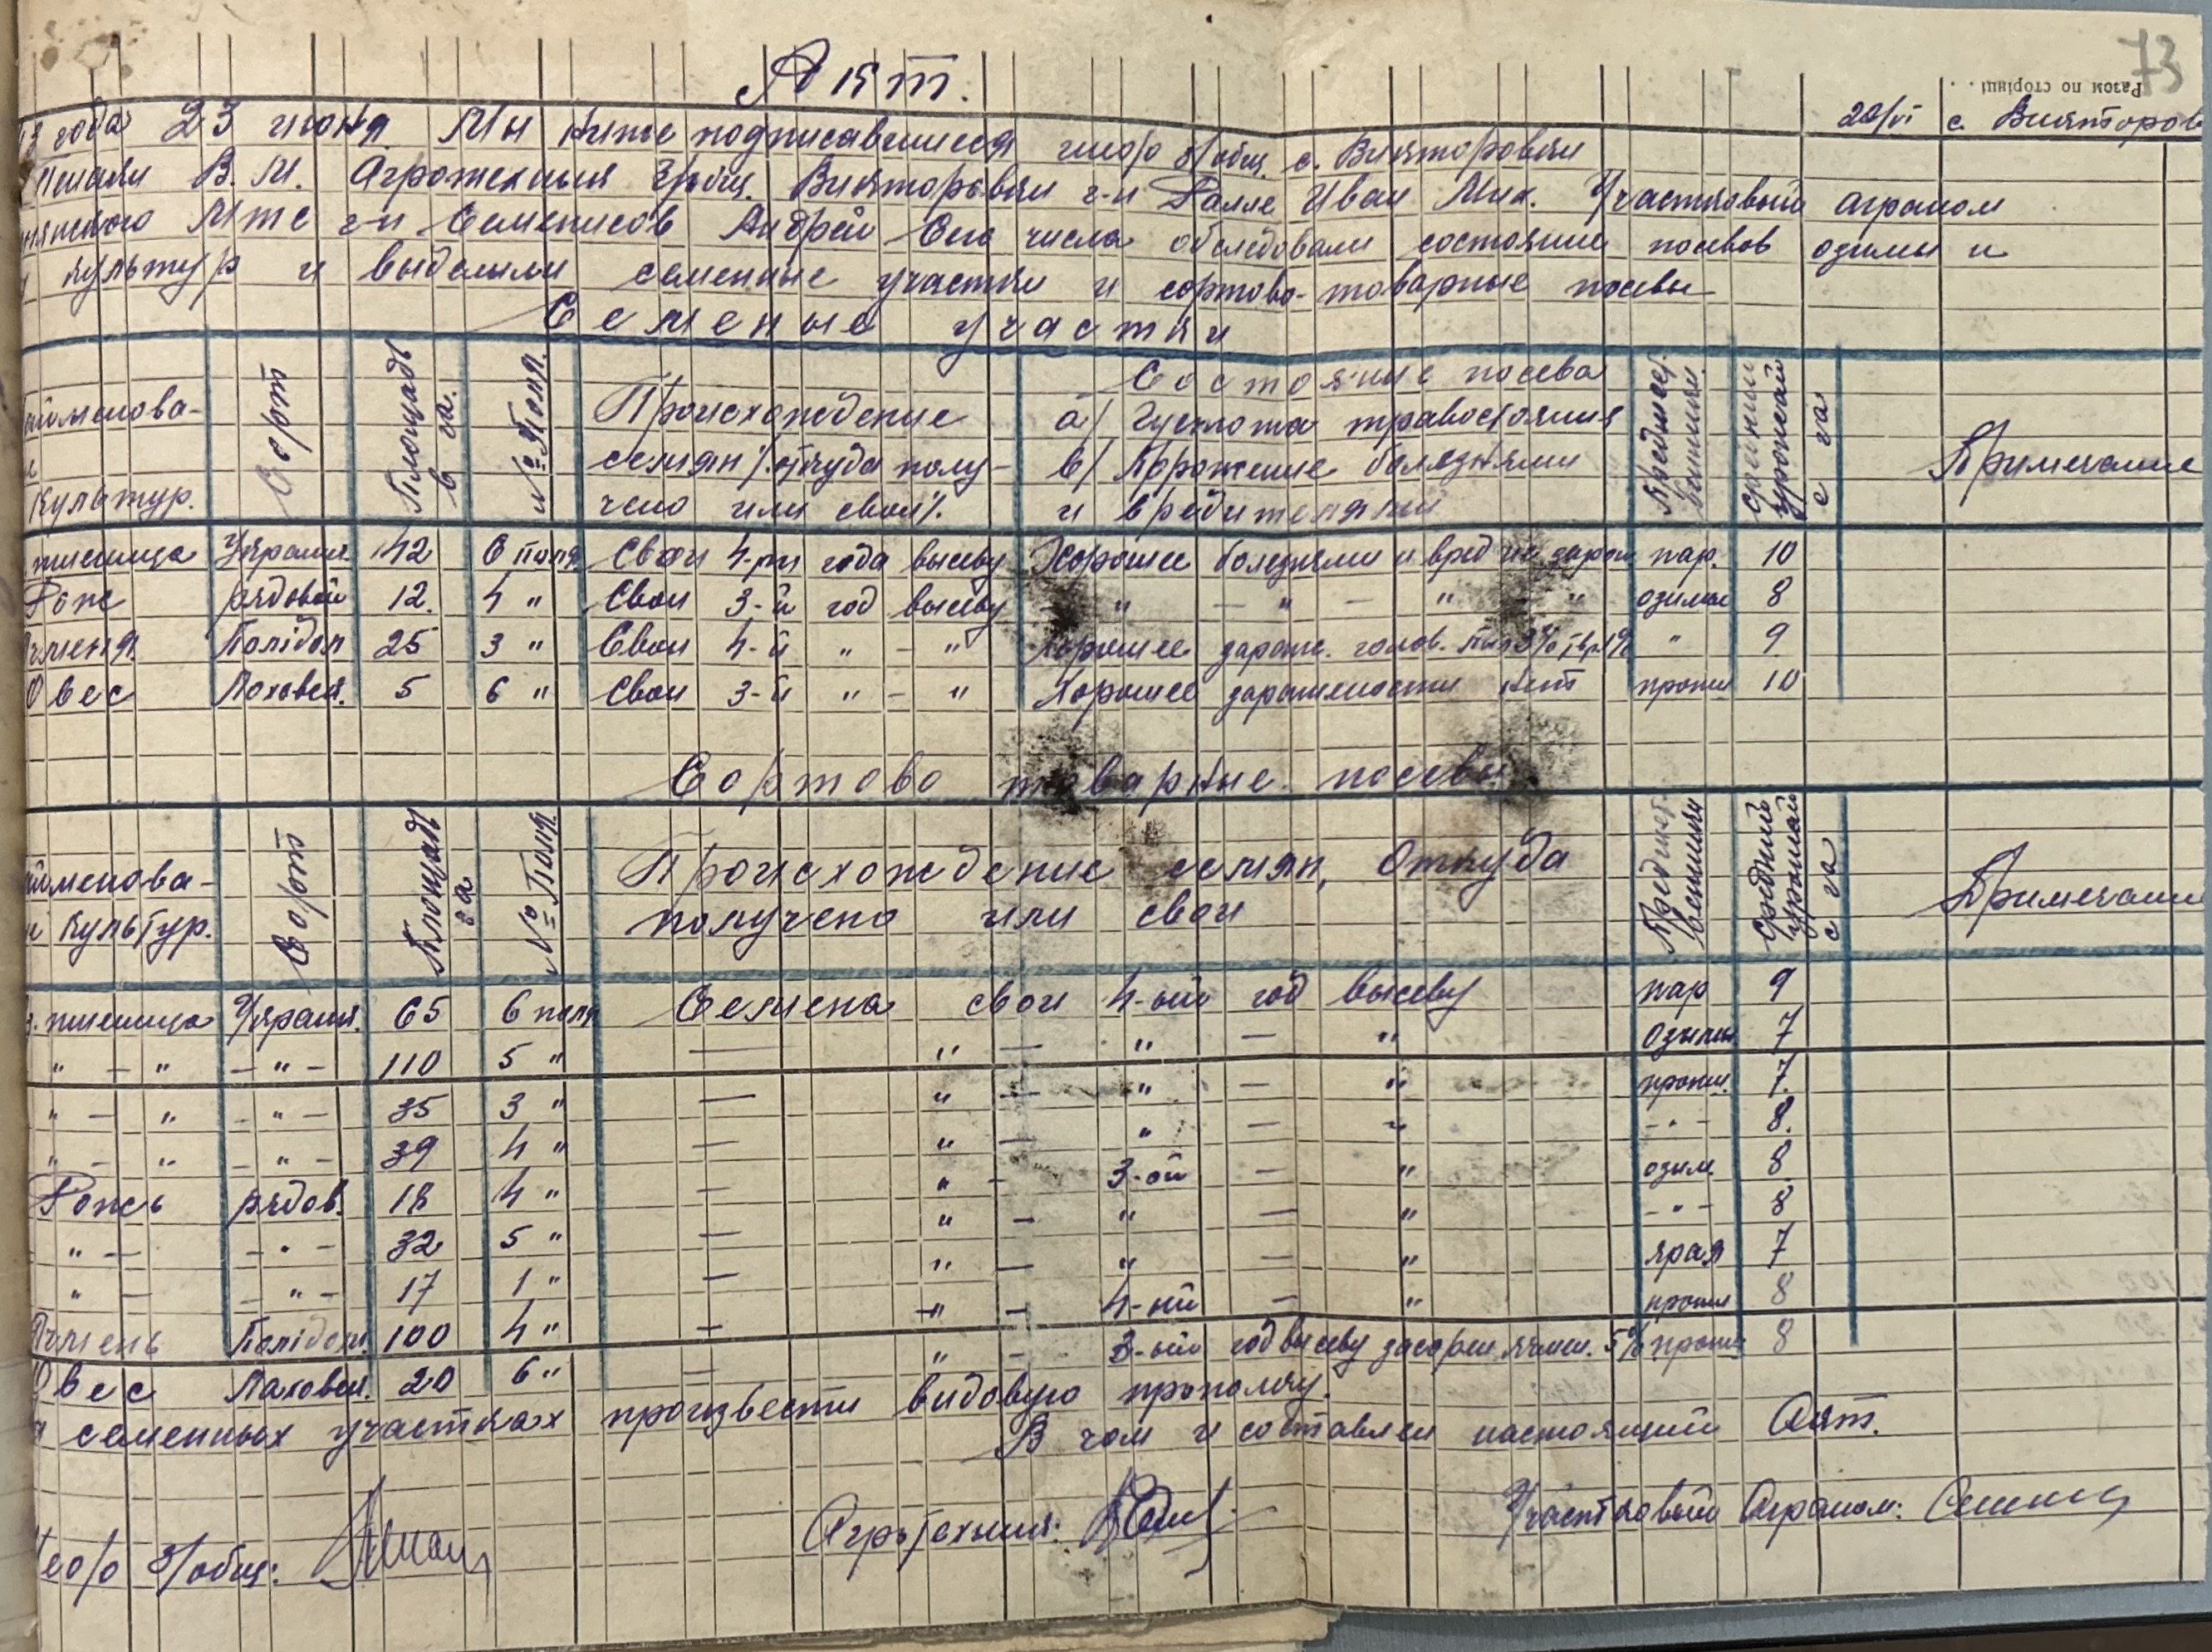 73
Разом по сторінці . .
Акт.
20/VI с. Викторов
года 23 июня Мы ниже подписавшиеся з/общ. с. Викторовки
В. М. Агротехник з/общ. Викторовки г-н Ралле Иван Мих. Участковый агроном
Мтс г-н Семенисов Андрей Сего числа обследовали состояние посевов озимы и
культур и выделили семенные участки и сортово-товарные посевы
Семеные участки
аименова-
е
культур.
Сорт
Площадь
в га.
№ Поля.
Происхождение
семян /.откуда полу-
чено или свои/.
Состояние посева
а/ Густота травостояния
в/ Порожение болезнями
и вредителями
Предшест.
Средний
урожай
с га
Примечание
пшеница Украин. 42 6 поля Свои 4-ый года высеву Хорошее болезнями и вред не зараж пар. 10
Рож рядовой 12. 4 " Свои 3-й год высеву " — " — " — " озимые 8
Ячменя Полідол 25 3 " Свои 4-й " - " Хорошее зараж. голов. 3% тв. 1% " 9
Овес Лохов. 5 6 " Свои 3-й " - " Хорошее заражености нет пропаш 10
Сортово товарные посевы
аименова-
и культур.
Сорт
Площадь
га
№ Поля.
Происхождение семян, откуда
получено или свои
Предшест-
Средний
урожай
с га
Примечание
з. пшеница Украин. 65 6 поля Семена свои 4-ый год высеву пар 9
" — " — " — 110 5 " — " — " — " озимы 7
" — " — " — 35 3 " — " — " — " пропаш. 7.
" — " — " — 39 4 " — " — " — " — " — 8.
Рожь рядов. 18 4 " — " - 3-ой — " озим. 8
" — — " — 32 5 " — " — " — " — " — 8
" — — " — 17 1 " — " — " — " ярая 7
Ячмень Полідол. 100 4 " — " — 4-ый — " пропаш 8
Овес Лохов. 20 6 " — " - 3-ый год высеву засорен ячмен. 5% пропаш 8
семенных участках произвести видовую прополку.
В чом и составлен настоящий Акт.
з/общ:
Агротехник:
Участковый Агроном: